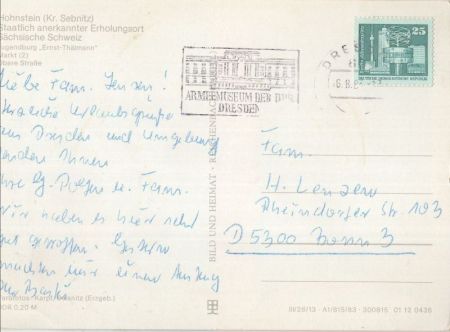 Hohnstein (Kr. Sebnitz)
Staatlich anerkannter Erholungsort
Sächsische Schweiz
Jugendburg „Ernst-Thälmann"
Markt (2)
Obere Straße
Liebe Fam. Jensen!
Herzliche Urlaubsgrüße
aus Dresden und Umgebung
senden Ihnen
Ihre u. Fam.
Wir haben es hier sehr
gut getroffen. Gestern
machten wir einen Ausflug
DDR 0,20 M
BILD UND HEIMAT · REICHENBACH
ARMEEMUSEUM DER DDR
DRESDEN
25
Fam.
H. Lenzen
Rheindorfer Str. 103
D 5300 Bonn 3
III/26/13 · A1/815/83 · 300815 01 12 0436